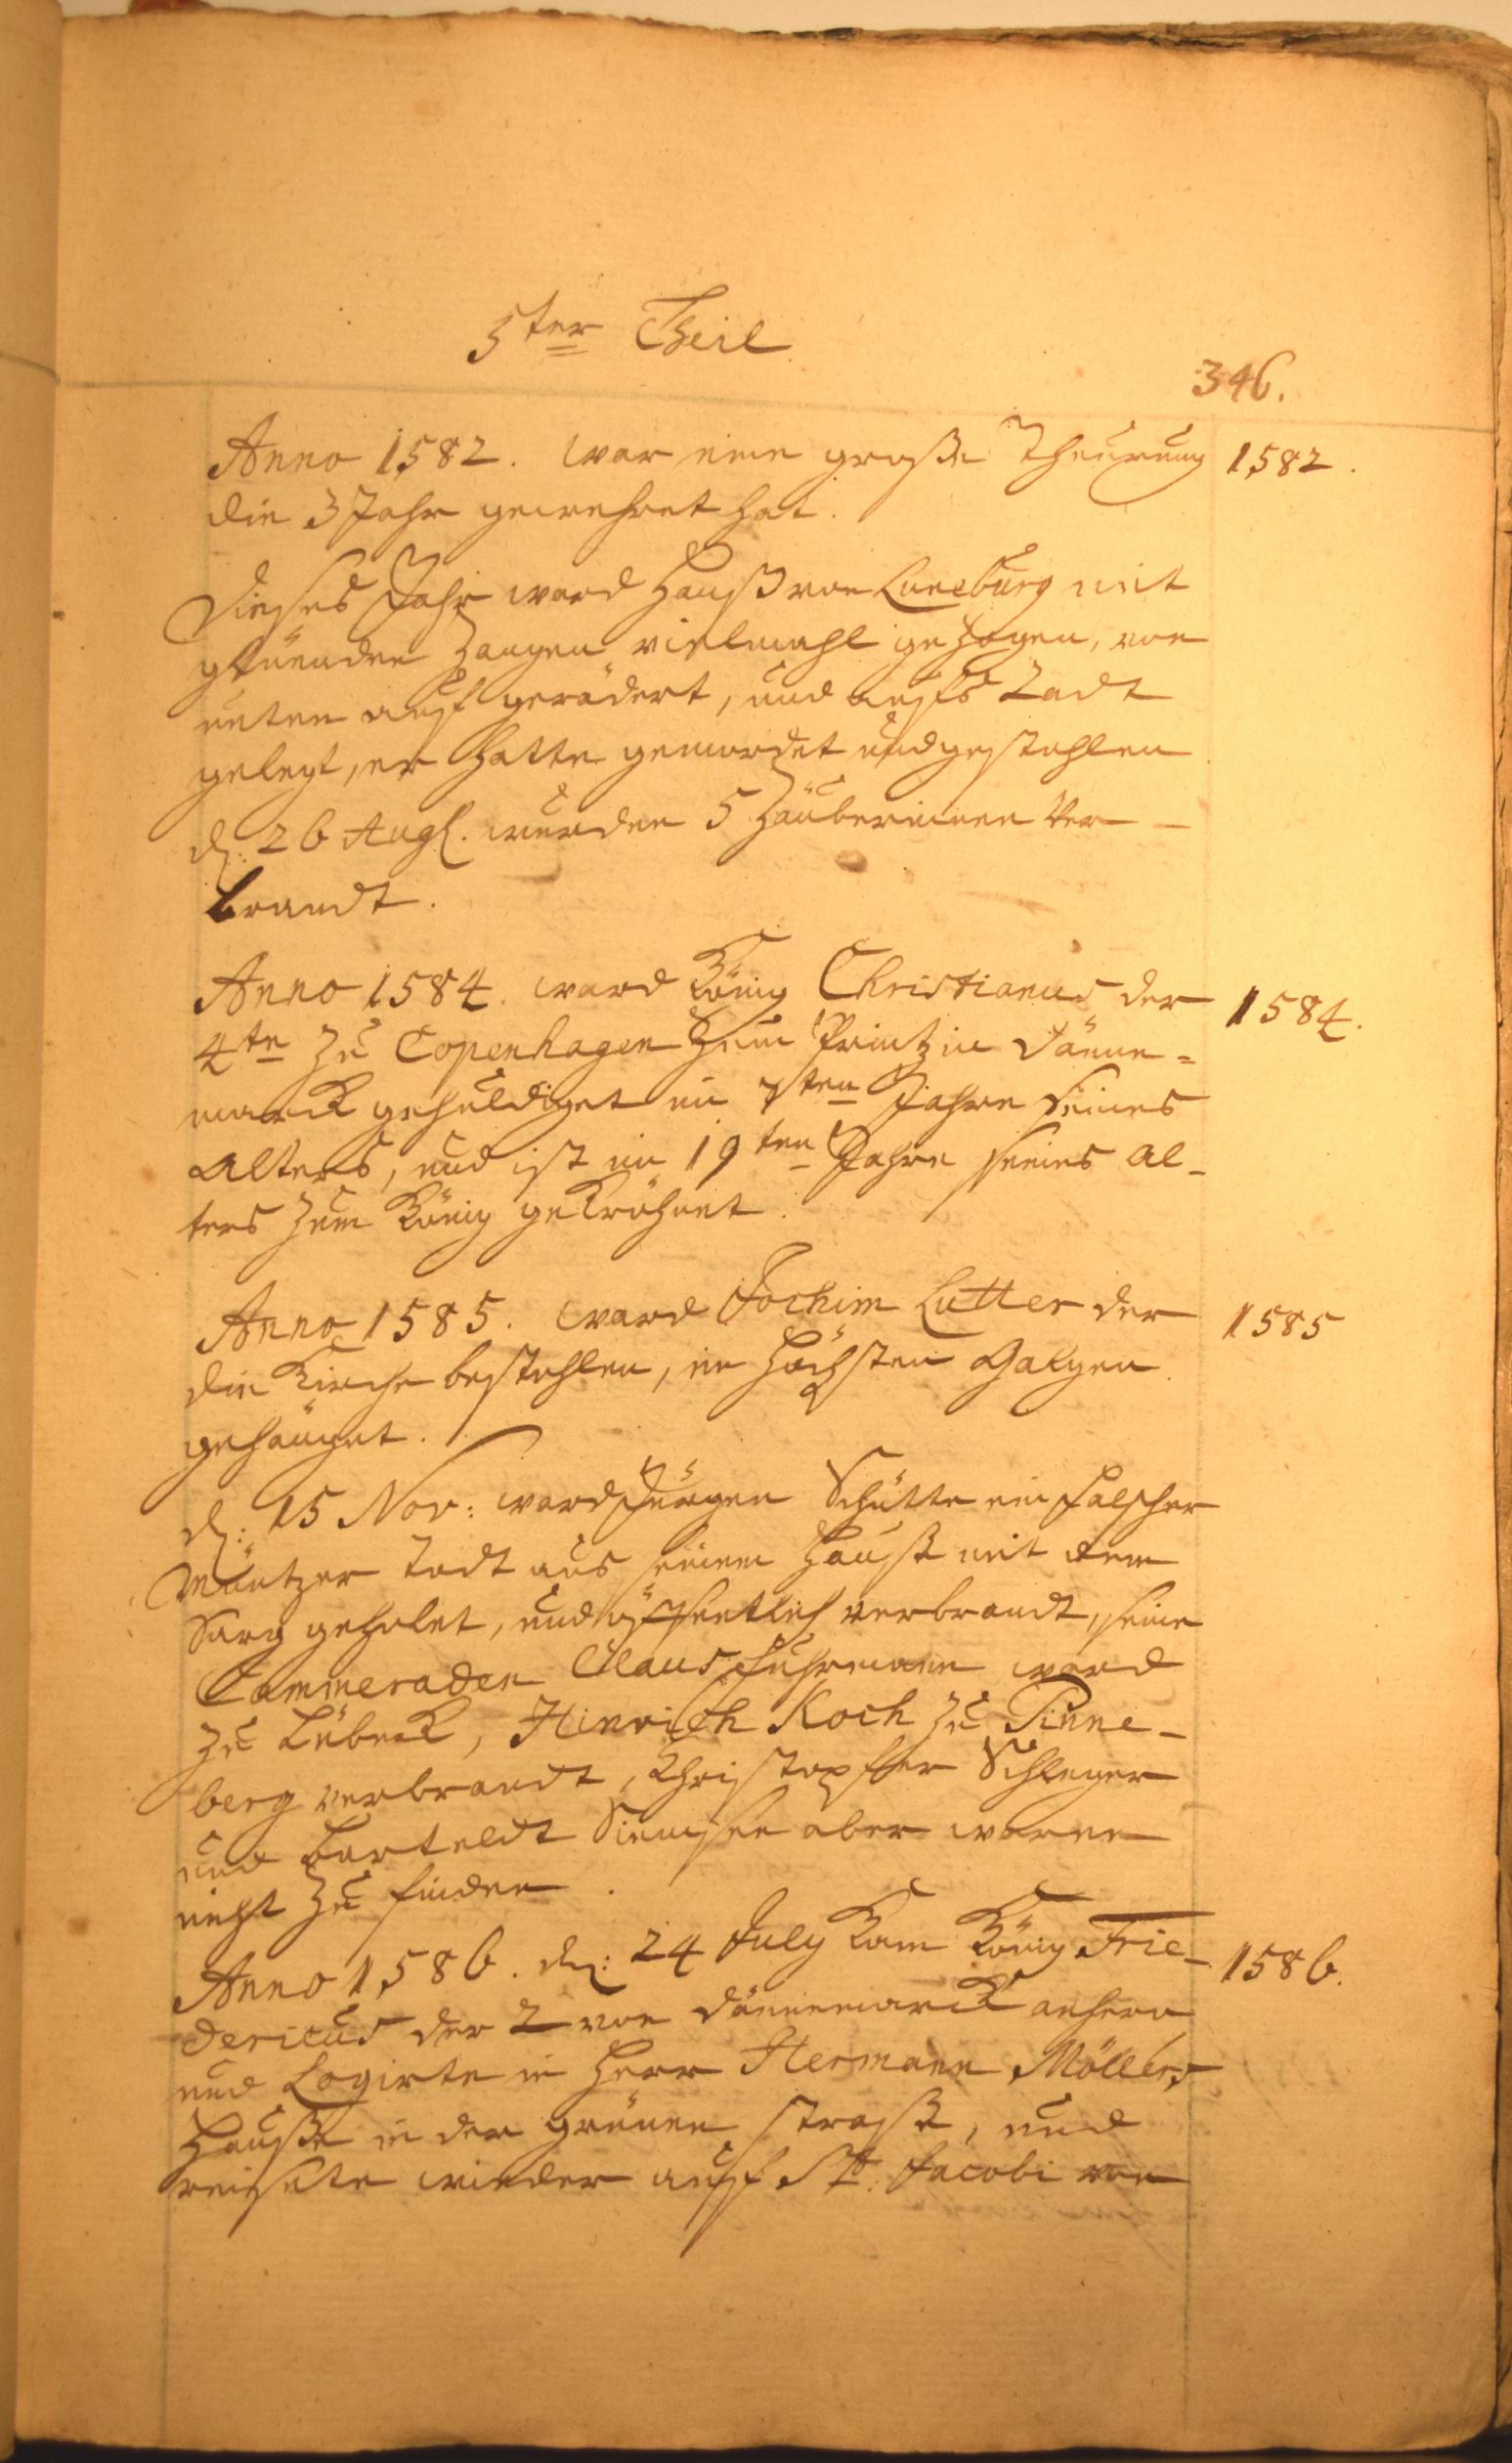 5ter Theil
346.
Anno 1582. war eine große Theurung 1582.
die 3 Jahr gewehret hat.
Dieses Jahr ward Hanß von Luneburg mit
glüenden Zangen vielmahl gezogen, von
unten auf gerädert, und aufs Radt
gelegt, er hatte gemordet und gestohlen
d: 26 Aug. wurden 5 Zäuberinnen Ver-
brandt.
Anno 1584. ward König Christianus der 1584.
4te zu Copenhagen zum Printz in Dänne=
marck gehuldiget im 7ten Jahre Seines
Alters, und ist im 19ten Jahre seines Al-
ters zum König gekröhnet.
Anno 1585. ward Jochim Lutter der 1585
die Kirche bestohlen, im Höchsten Galgen
gehänget.
d: 15 Nov: ward Jürgen Schütte ein falscher
Müntzer todt aus seinem Hauße mit dem
Sarg geholet, und öffentlich verbrandt, seine
Cammeraden Claus Fuhrmann ward
zu Lübeck, Hinrich Koch zu Pinne-
berg verbrandt, Christopher Schleyer
und Barteldt Siemsen aber waren
nicht zu finden.
Anno 1586. d: 24 July kam König Frie- 1586.
dericus der 2 von Dännemarck anhero
und Logirte in Herr Hermann Möllers
Hauße in der grünen straße, und
reisete wieder auff St. Jacobi von